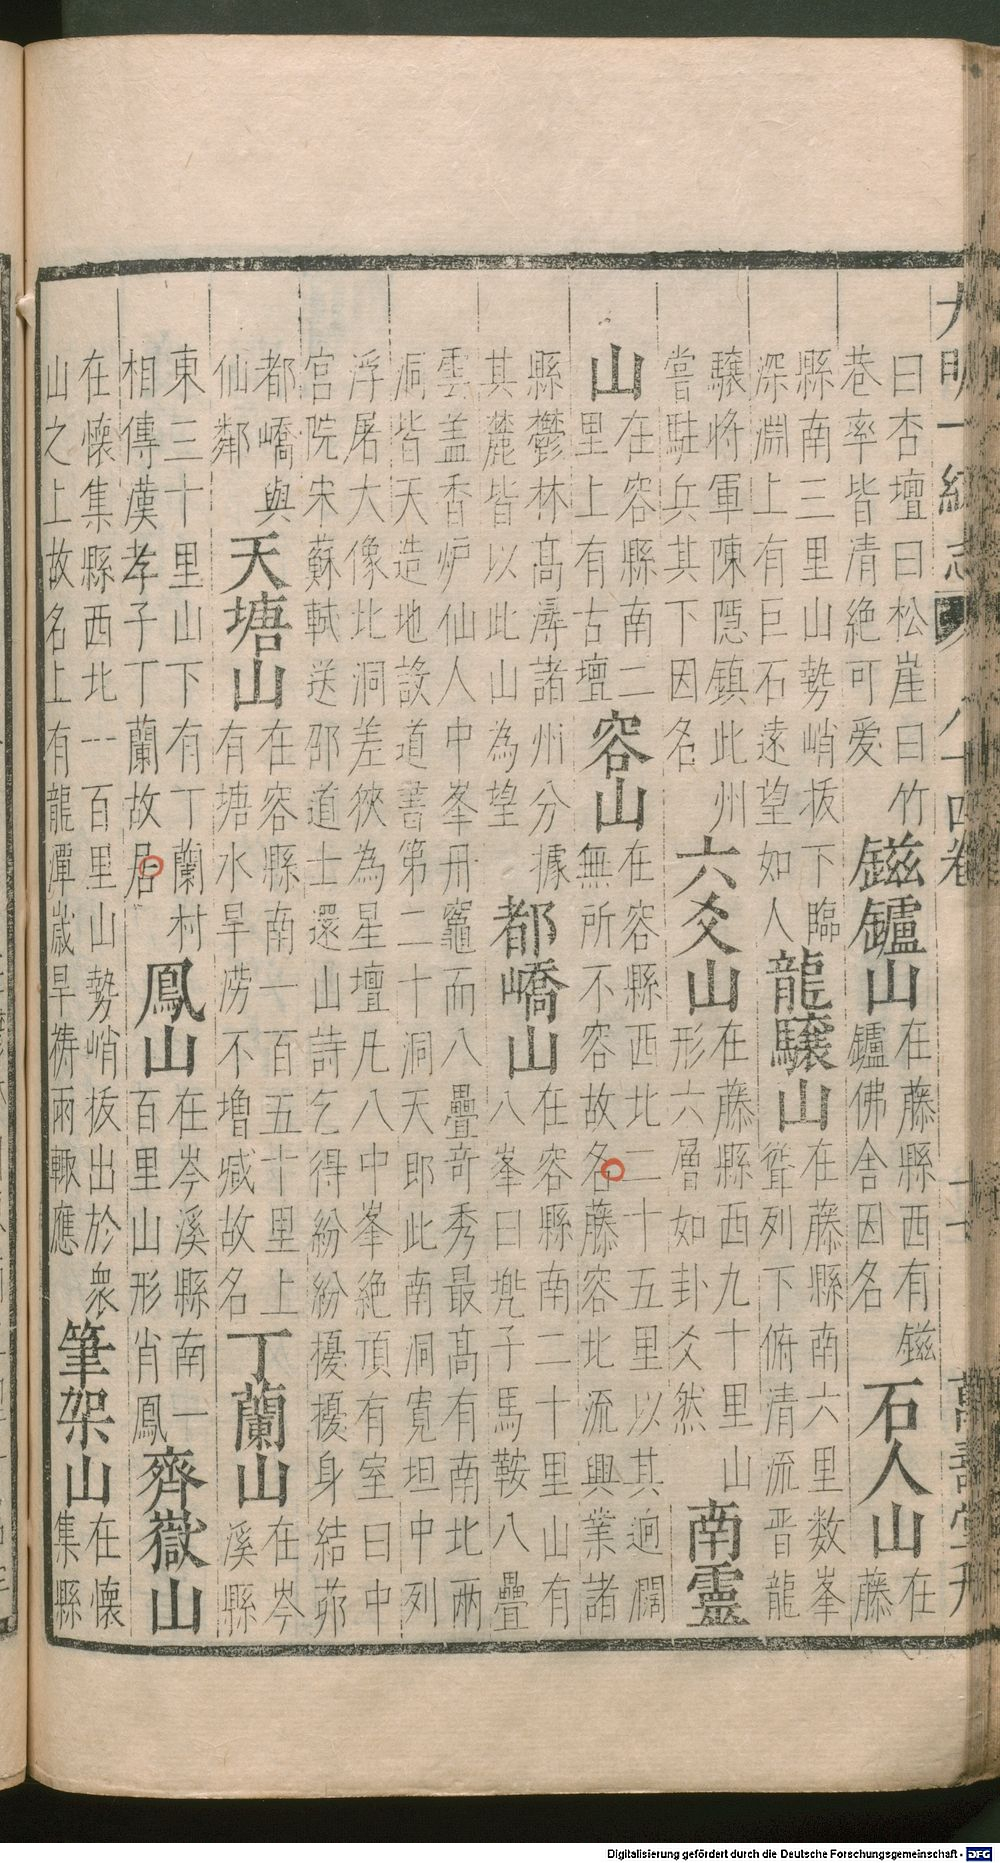 大明一統志 八十四卷 萬壽堂刋
曰杏壇曰松崖曰竹
巷率皆清絶可爱
鎡鑪山
在藤縣西有鎡
鑪佛舍因名
石人山
在
藤
縣南三里山勢峭拔下臨
深淵上有巨石遠望如人
龍驤山
在藤縣南六里数峯
聳列下俯清流晋龍
驤将軍陳隠鎮此州
嘗駐兵其下因名
六爻山
在藤縣西九十里山
形六層如卦爻然
南靈
山
在容縣南二
里上有古壇
容山
在容縣西北二十五里以其逈濶
無所不容故名藤容北流興業諸
縣鬱林髙潯諸州分據
其麓皆以此山為望
都嶠山
在容縣南二十里山有
八峯曰兠子馬鞍八疊
雲盖香炉仙人中峯丹竈而八疊竒秀最髙有南北兩
洞皆天造地設道書第二十洞天即此南洞寛坦中列
浮屠大像北洞差狹為星壇凡八中峯絶頂有室曰中
宫院宋蘇軾送邵道士還山詩乞得紛紛擾擾身結茆
都嶠與
仙鄰
天塘山
在容縣南一百五十里上
有塘水旱澇不増减故名
丁蘭山
在岑
溪縣
東三十里山下有丁蘭村
相傳漢孝子丁蘭故居
鳳山
在岑溪縣南一
百里山形肖鳳
齊嶽山
在懷集縣西北一百里山勢峭拔出於衆
山之上故名上有龍潭歳旱祷雨輙應
筆架山
在懷
集縣
Digitalisierung gefördert durch die Deutsche Forschungsgemeinschaft - DFG